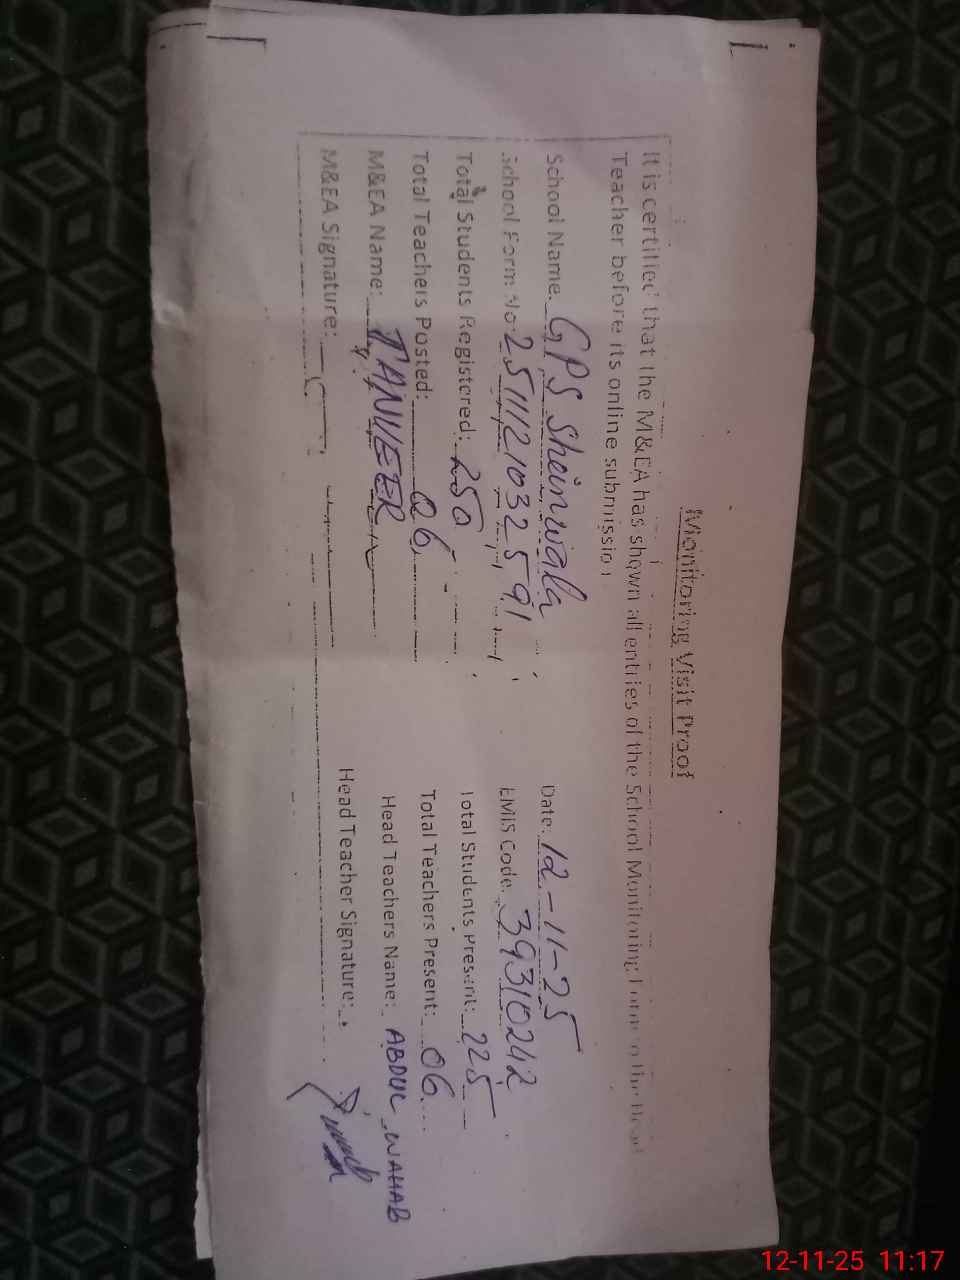 Monitoring Visit Proof
It is certified that the M&EA has shown all entries of the School Monitoring Form to the Head
Teacher before its online submission
School Name: GPS Sheinwala Date: 12-11-25
School Form No: 25111210325591 EMIS Code: 39310242
Total Students Registered: 250 Total Students Present: 225
Total Teachers Posted: 06 Total Teachers Present: 06
M&EA Name: TANVEER Head Teachers Name: ABDUL WAHAB
M&EA Signature: Head Teacher Signature:
12-11-25 11:17